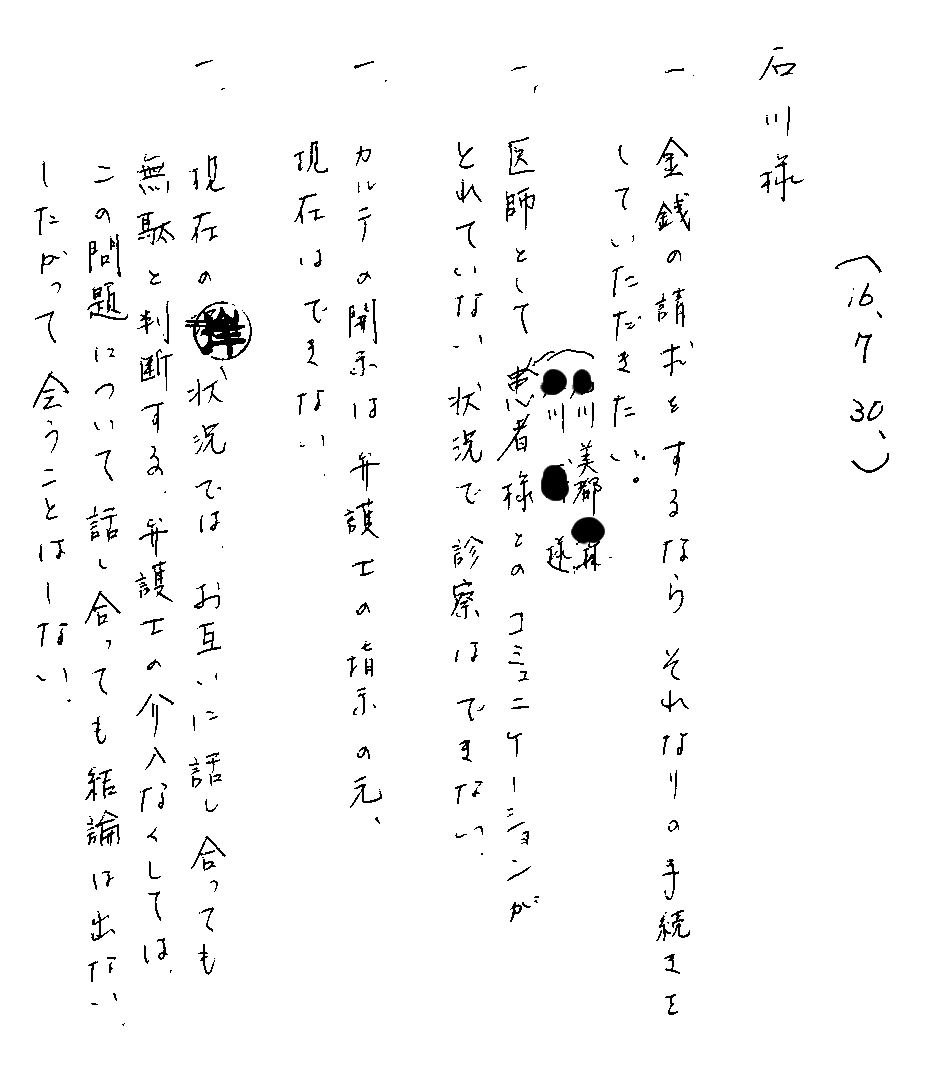 (16、7 30、)
石川様
一 金銭の請求をするなら それなりの手続きを
していただきたい。
川 美都 様
川 様
一、医師として患者様とのコミュニケーションが
とれていない状況で診察はできない.
一. カルテの開示は弁護士の指示の元、
現在はできない.
一. 現在の状況では、お互いに話し合っても
無駄と判断する、弁護士の介入なくしては、
この問題について話し合っても結論は出ない.
したがって会うことはしない.